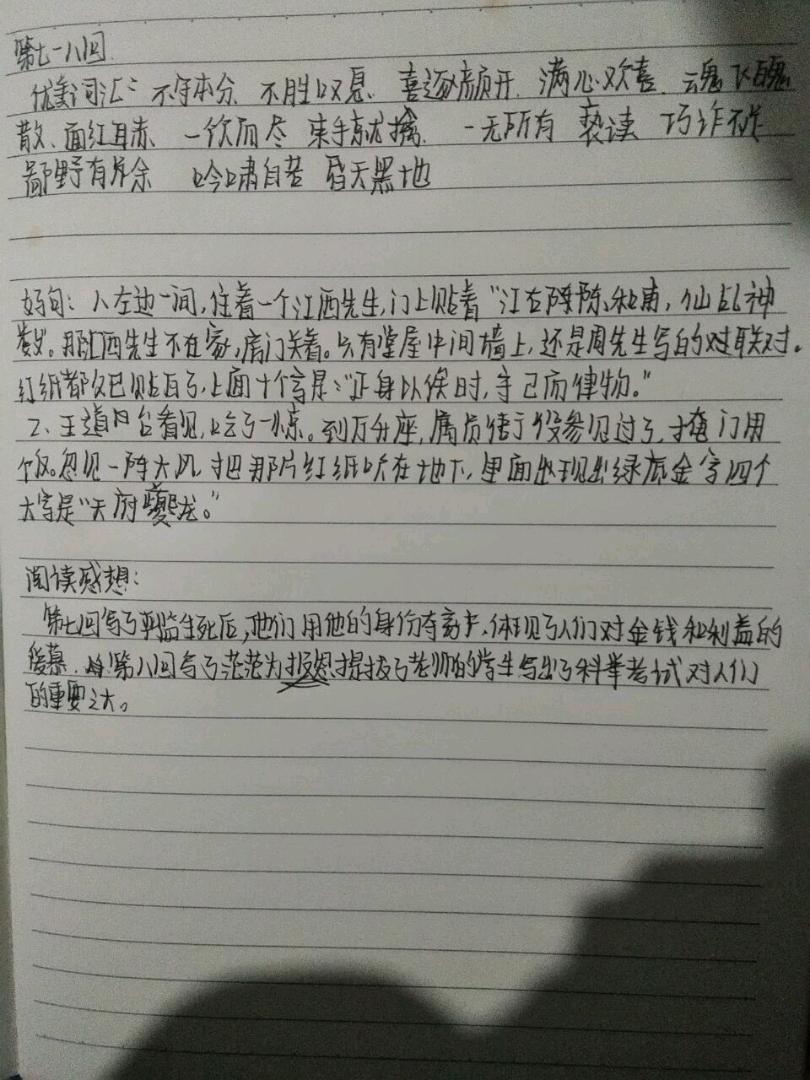 第七-八回
优美词汇: 不守本分、不胜叹息、喜逐颜开、满心欢喜、魂飞魄
散、面红耳赤、一饮而尽 束手就擒、一无所有 亵读 巧诈不
鄙野有余 吟啸自若 昏天黑地
好句: 1、左边一间,住着一个江西先生,门上贴着“江右陈和甫,仙乩神
数。那江西先生不在家,房门关着。只有堂屋中间墙上,还是周先生写的对联对。
红纸都久已贴白了,上面十个字是:“正身以俟时,守己而律物。”
2、王道台看见,吃了一惊。到厅升座,属员衙役参见过了,掩门用
饭。忽见一阵大风,把那片红纸吹在地下,里面出现出绿底金字四个
大字是“天府夔龙。”
阅读感想:
第七回写了 监生死后,他们用他的身份夺家产,体现了人们对金钱和利益的
第八回写了范范为报恩提拔了老师的学生写出了科举考试对人们
的重要之大。